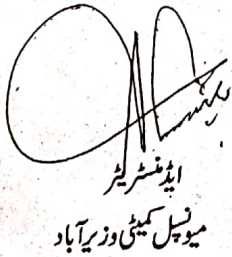 ایڈمنسٹریٹر
میونسپل کمیٹی وزیرآباد